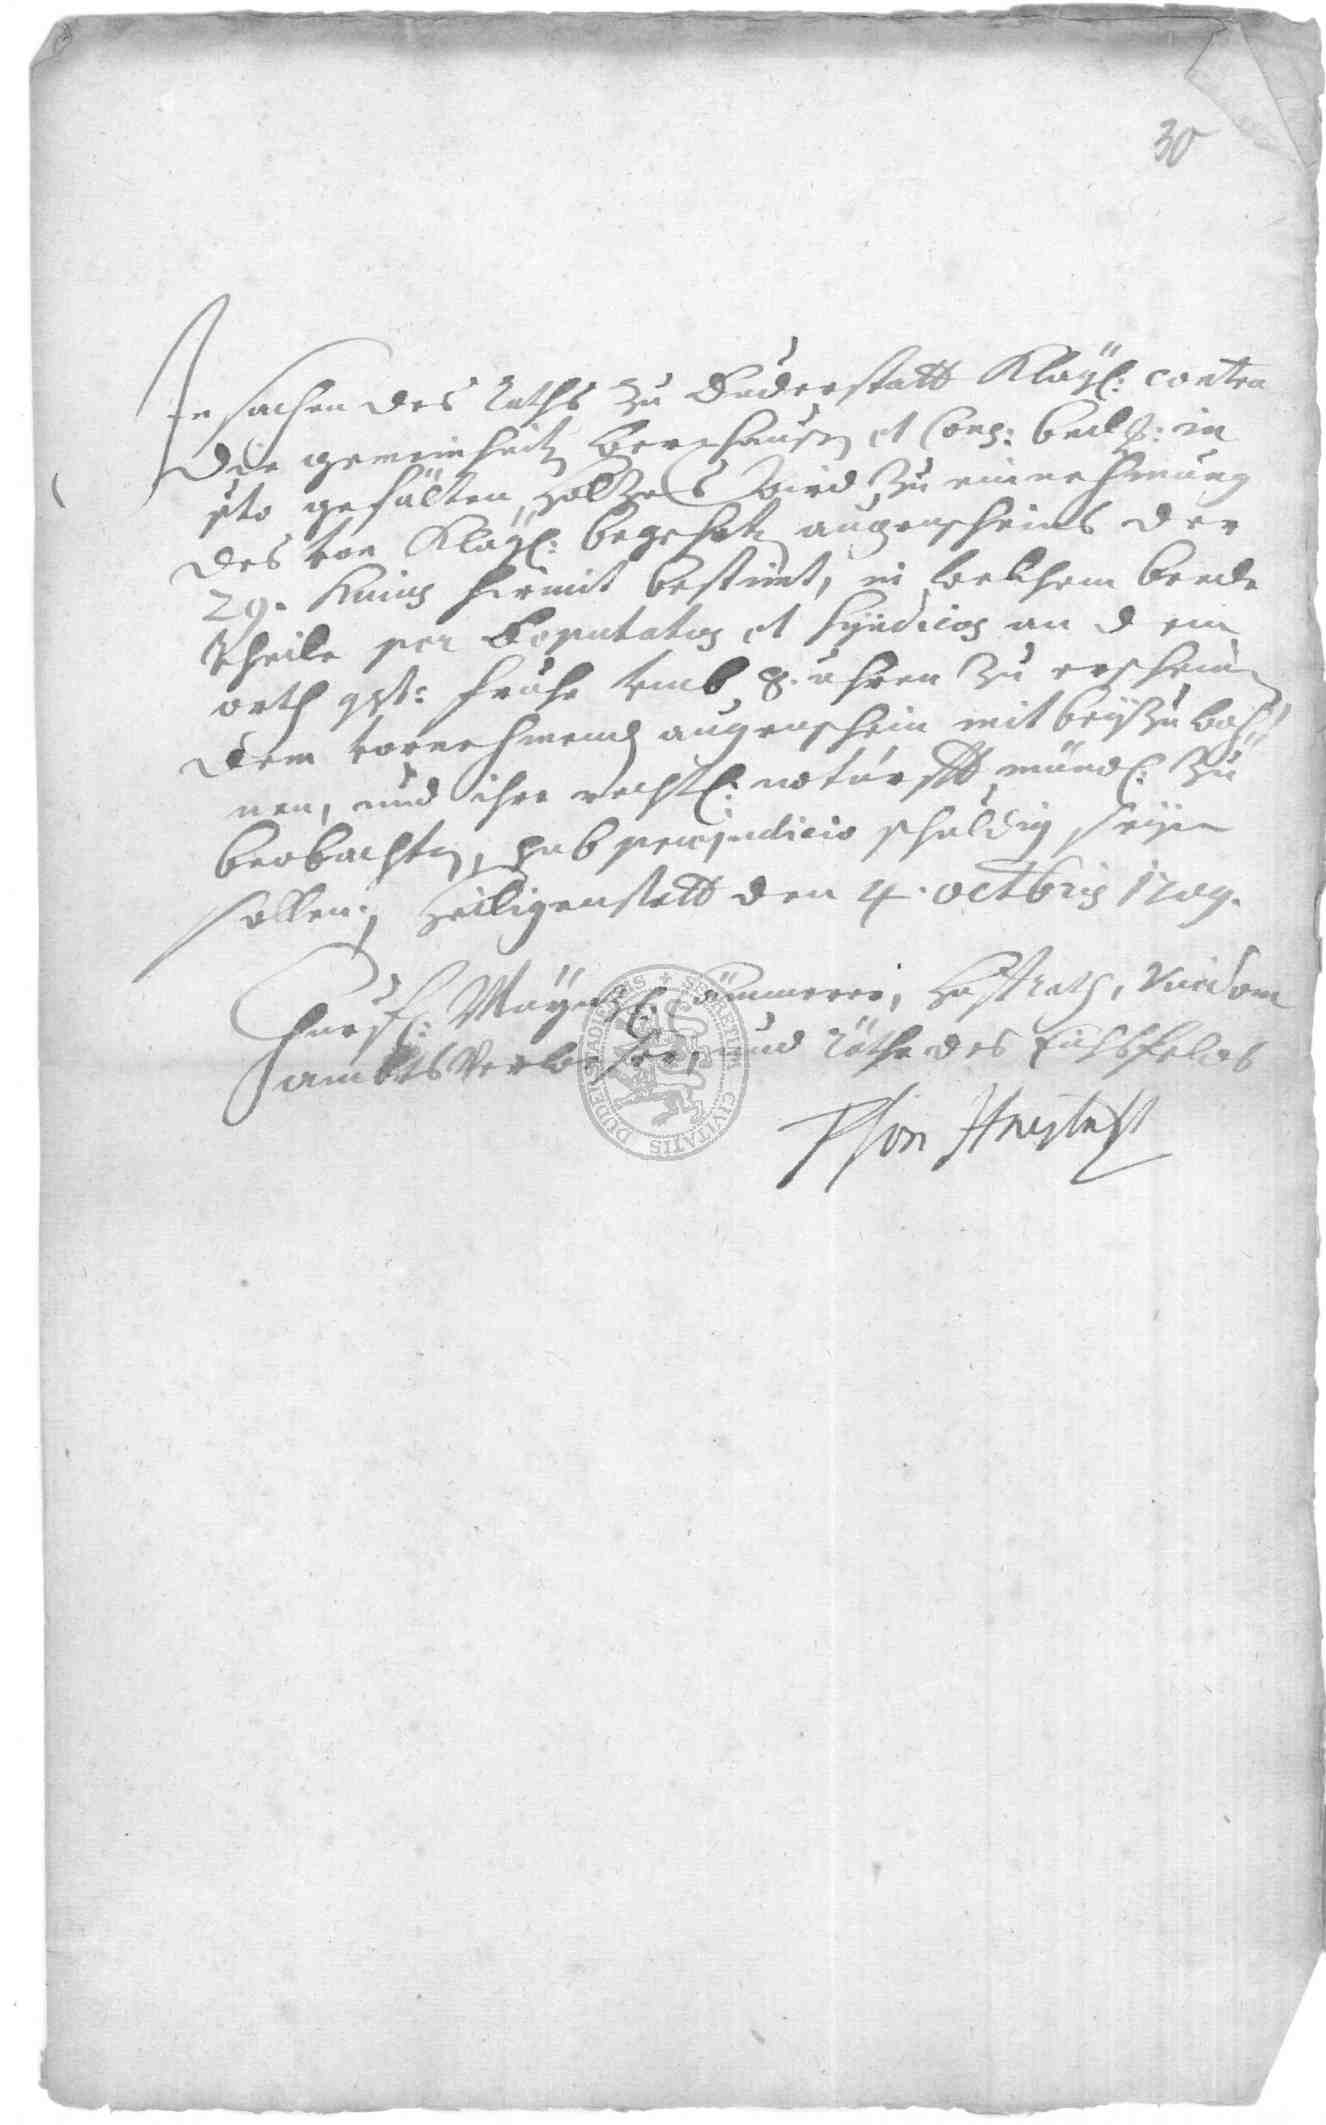 30
In sachen des Raths zu Duderstatt Kläg: contra
die gemeinheit Bernshausen et Cons: bekl: in
pto gefälten Holtzes wird zu einnehmung
des von Kläg: begehrten augenscheins der
29. huius hiemit bestimt, in welchem beede
theile per Deputatos et Syndicos an dem
orth frühe umb 8. uhren zu erscheinen
dem vornehmenden augenschein mit beyzuwoh=
nen, und ihre rechtl: notturfft mündl: zu
beobachten, sub praejudicio schuldig seyn
sollen; Heiligenstatt den 4. octbris 1709.
Churfl: Mayntzl: Cämmerer, Hoffrath, Vicedom
ambts Verweser, und Räthe des Eichsfelds
SECRETUM CIVITATIS DUDERSTADIENSIS